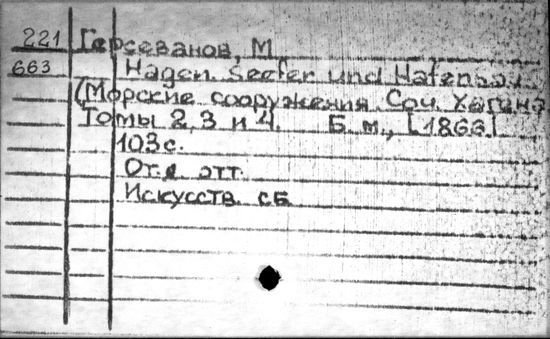 221 Герсеванов, М
663 Hagen. Seefer und Hafenbau.
(Морские сооружения. Соч. Хагена
Томы 2, 3 и 4. Б. м., [1866.]
103 с.
Отд. отт.
Искусств. сб